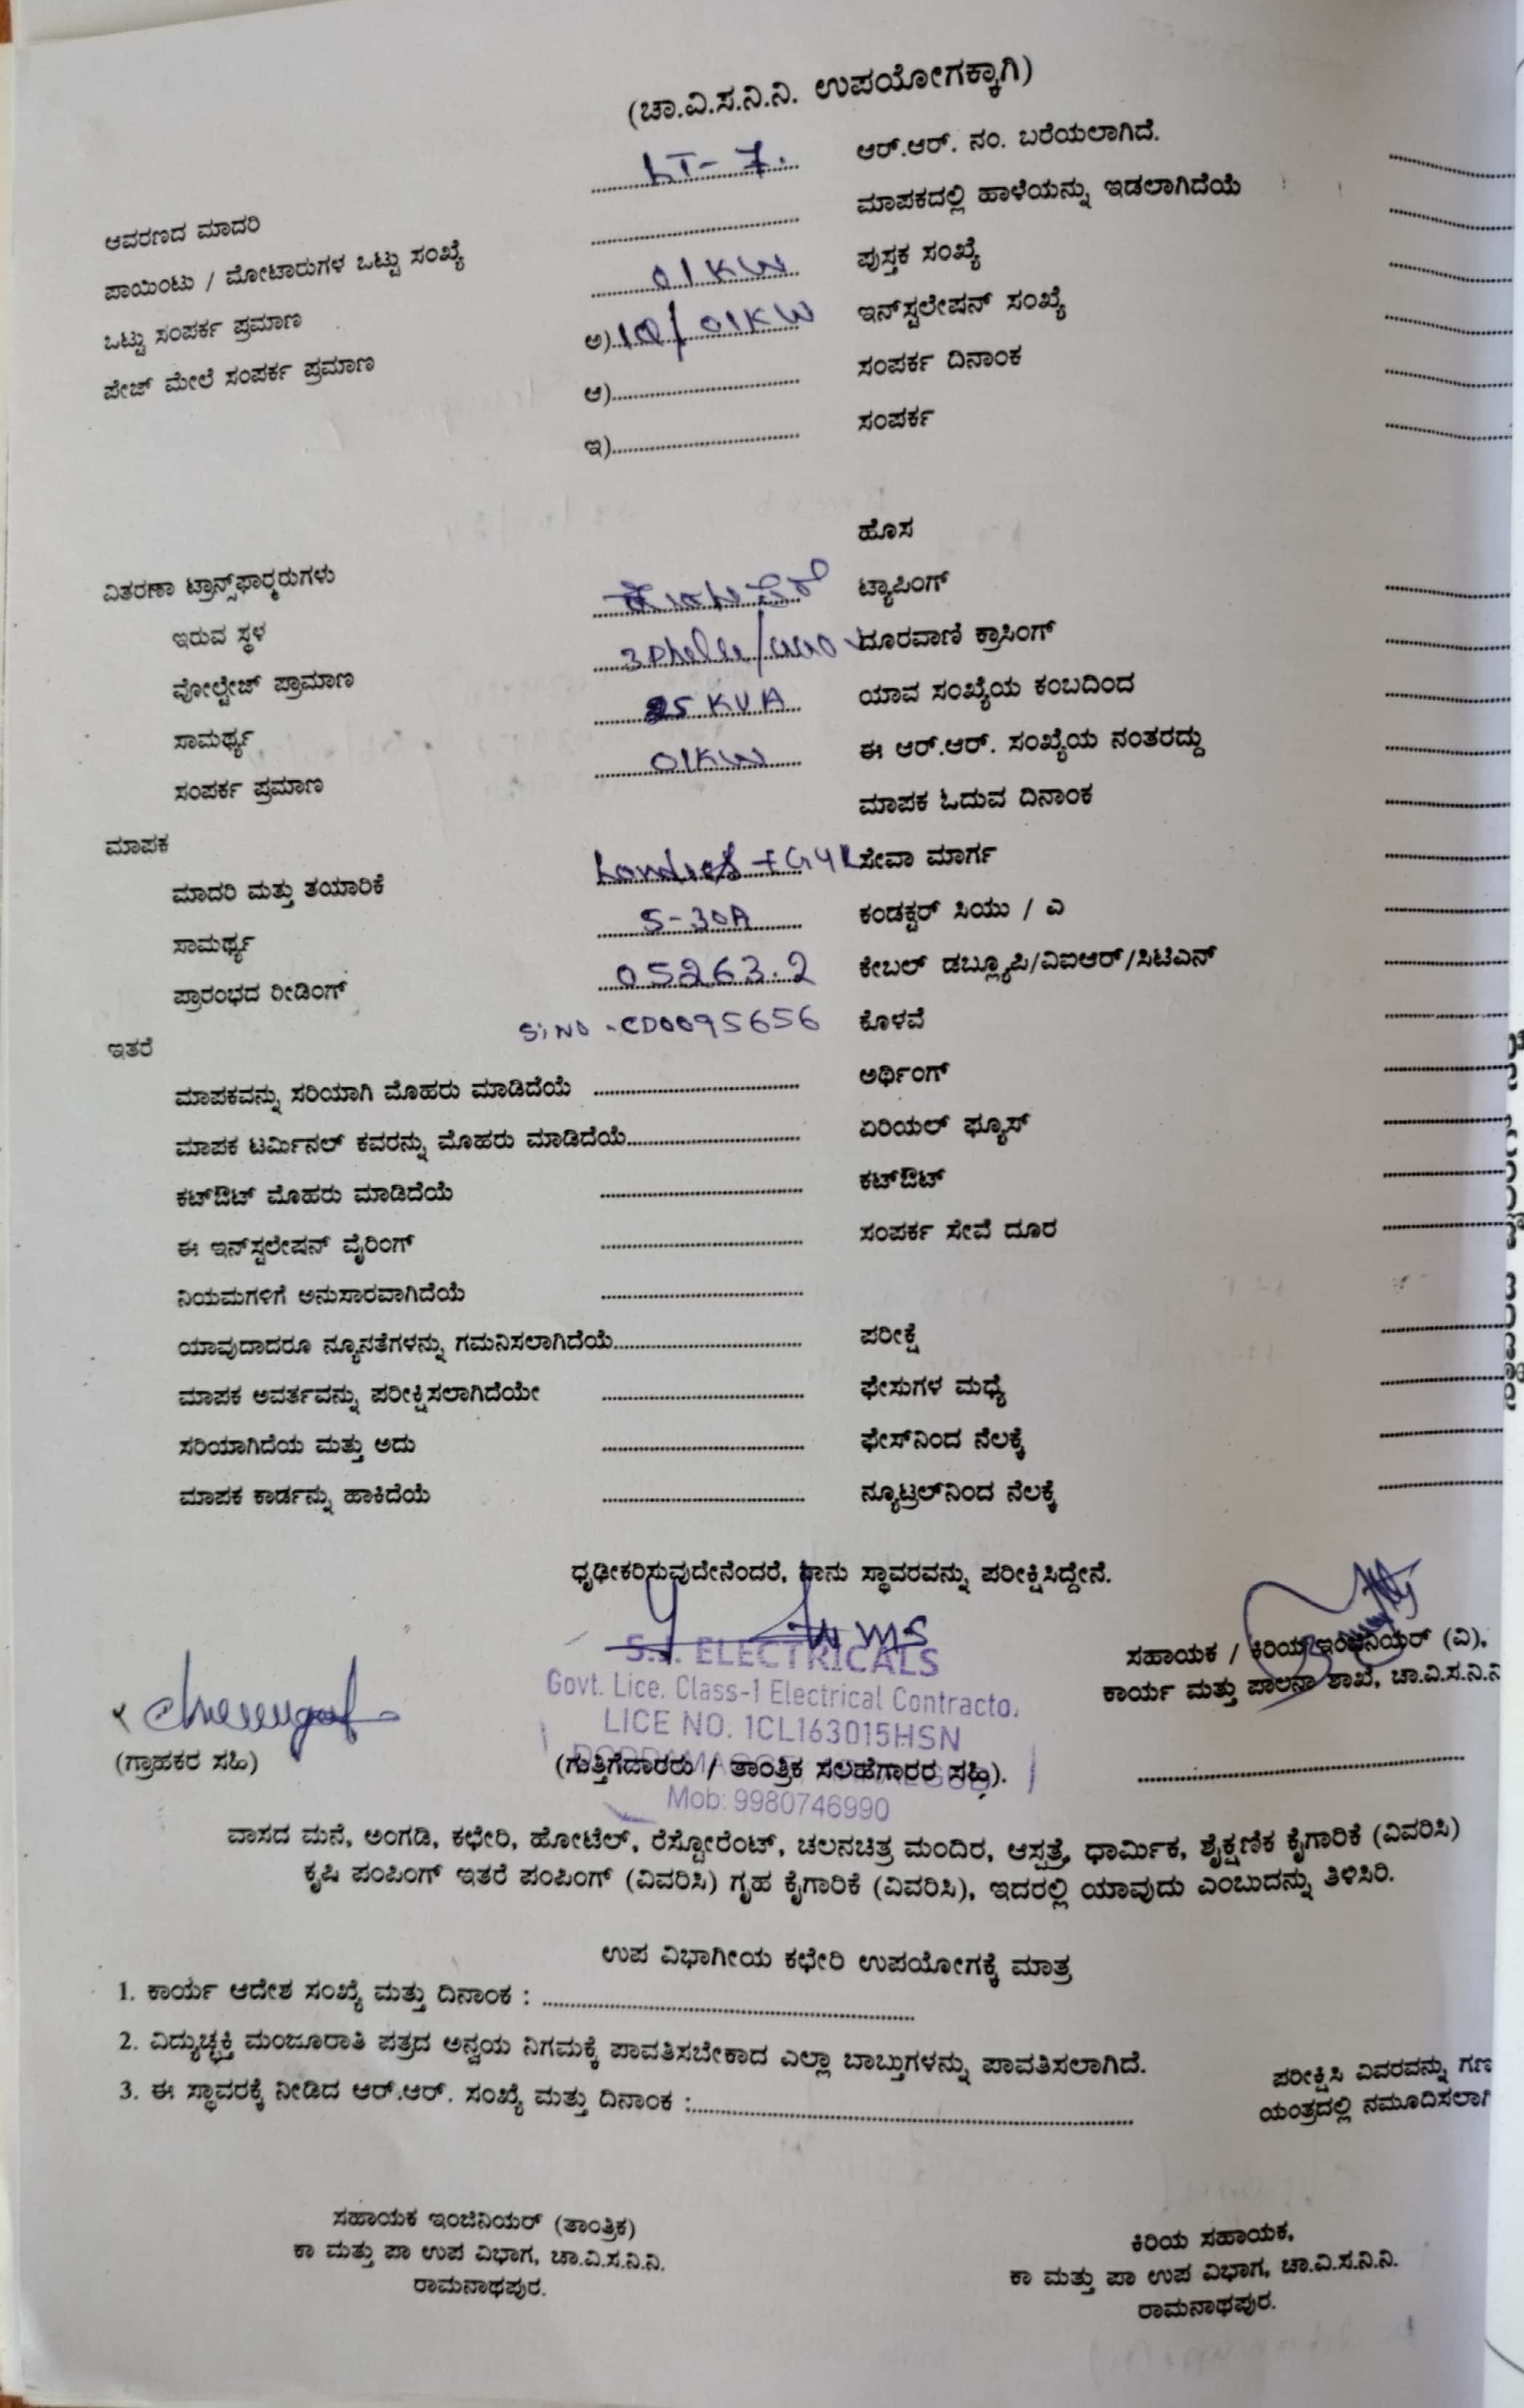 (ಚಾ.ವಿ.ಸ.ನಿ.ನಿ. ಉಪಯೋಗಕ್ಕಾಗಿ)
ಆವರಣದ ಮಾದರಿ LT-7. ಆರ್.ಆರ್. ನಂ. ಬರೆಯಲಾಗಿದೆ.
ಪಾಯಿಂಟು / ಮೋಟಾರುಗಳ ಒಟ್ಟು ಸಂಖ್ಯೆ ಮಾಪಕದಲ್ಲಿ ಹಾಳೆಯನ್ನು ಇಡಲಾಗಿದೆಯೆ
ಒಟ್ಟು ಸಂಪರ್ಕ ಪ್ರಮಾಣ 01KW ಪುಸ್ತಕ ಸಂಖ್ಯೆ
ಪೇಜ್ ಮೇಲೆ ಸಂಪರ್ಕ ಪ್ರಮಾಣ ಅ) 1Φ/ 01KW ಇನ್‌ಸ್ಟಲೇಷನ್ ಸಂಖ್ಯೆ
ಆ) ಸಂಪರ್ಕ ದಿನಾಂಕ
ಇ) ಸಂಪರ್ಕ
ಹೊಸ
ವಿತರಣಾ ಟ್ರಾನ್ಸ್‌ಫಾರ್‍ಮರುಗಳು ಟ್ಯಾಪಿಂಗ್
ಇರುವ ಸ್ಥಳ ದೂರವಾಣಿ ಕ್ರಾಸಿಂಗ್
ವೋಲ್ಟೇಜ್ ಪ್ರಾಮಾಣ ಯಾವ ಸಂಖ್ಯೆಯ ಕಂಬದಿಂದ
ಸಾಮರ್ಥ್ಯ 25 KVA ಈ ಆರ್.ಆರ್. ಸಂಖ್ಯೆಯ ನಂತರದ್ದು
ಸಂಪರ್ಕ ಪ್ರಮಾಣ 01KW ಮಾಪಕ ಓದುವ ದಿನಾಂಕ
ಮಾಪಕ ಸೇವಾ ಮಾರ್ಗ
ಮಾದರಿ ಮತ್ತು ತಯಾರಿಕೆ ಕಂಡಕ್ಟರ್ ಸಿಯು / ಎ
ಸಾಮರ್ಥ್ಯ 5-30A ಕೇಬಲ್ ಡಬ್ಲ್ಯೂಪಿ/ವಿಐಆರ್/ಸಿಟಿಎನ್
ಪ್ರಾರಂಭದ ರೀಡಿಂಗ್ 05263.2 ಕೊಳವೆ
ಇತರೆ Si No - CD0095656
ಮಾಪಕವನ್ನು ಸರಿಯಾಗಿ ಮೊಹರು ಮಾಡಿದೆಯೆ ಅರ್ಥಿಂಗ್
ಮಾಪಕ ಟರ್ಮಿನಲ್ ಕವರನ್ನು ಮೊಹರು ಮಾಡಿದೆಯೆ ಏರಿಯಲ್ ಫ್ಯೂಸ್
ಕಟ್‌ಔಟ್ ಮೊಹರು ಮಾಡಿದೆಯೆ ಕಟ್‌ಔಟ್
ಈ ಇನ್‌ಸ್ಟಲೇಷನ್ ವೈರಿಂಗ್ ಸಂಪರ್ಕ ಸೇವೆ ದೂರ
ನಿಯಮಗಳಿಗೆ ಅನುಸಾರವಾಗಿದೆಯೆ
ಯಾವುದಾದರೂ ನ್ಯೂನತೆಗಳನ್ನು ಗಮನಿಸಲಾಗಿದೆಯೆ ಪರೀಕ್ಷೆ
ಮಾಪಕ ಅವರ್ತವನ್ನು ಪರೀಕ್ಷಿಸಲಾಗಿದೆಯೇ ಫೇಸುಗಳ ಮಧ್ಯೆ
ಸರಿಯಾಗಿದೆಯ ಮತ್ತು ಅದು ಫೇಸ್‌ನಿಂದ ನೆಲಕ್ಕೆ
ಮಾಪಕ ಕಾರ್ಡನ್ನು ಹಾಕಿದೆಯೆ ನ್ಯೂಟ್ರಲ್‌ನಿಂದ ನೆಲಕ್ಕೆ
ಧೃಢೀಕರಿಸುವುದೇನೆಂದರೆ, ನಾನು ಸ್ಥಾವರವನ್ನು ಪರೀಕ್ಷಿಸಿದ್ದೇನೆ.
ELECTRICALS
Govt. Lice. Class-1 Electrical Contracto.
LICE NO. 1CL163015HSN
ಸಹಾಯಕ / ಕಿರಿಯ ಇಂಜಿನಿಯರ್ (ವಿ),
ಕಾರ್ಯ ಮತ್ತು ಪಾಲನಾ ಶಾಖೆ, ಚಾ.ವಿ.ಸ.ನಿ.ನಿ
(ಗ್ರಾಹಕರ ಸಹಿ) (ಗುತ್ತಿಗೆದಾರರು / ತಾಂತ್ರಿಕ ಸಲಹೆಗಾರರ ಸಹಿ).
Mob: 9980746990
ವಾಸದ ಮನೆ, ಅಂಗಡಿ, ಕಛೇರಿ, ಹೋಟೆಲ್, ರೆಸ್ಟೋರೆಂಟ್, ಚಲನಚಿತ್ರ ಮಂದಿರ, ಆಸ್ಪತ್ರೆ, ಧಾರ್ಮಿಕ, ಶೈಕ್ಷಣಿಕ ಕೈಗಾರಿಕೆ (ವಿವರಿಸಿ)
ಕೃಷಿ ಪಂಪಿಂಗ್ ಇತರೆ ಪಂಪಿಂಗ್ (ವಿವರಿಸಿ) ಗೃಹ ಕೈಗಾರಿಕೆ (ವಿವರಿಸಿ), ಇದರಲ್ಲಿ ಯಾವುದು ಎಂಬುದನ್ನು ತಿಳಿಸಿರಿ.
ಉಪ ವಿಭಾಗೀಯ ಕಛೇರಿ ಉಪಯೋಗಕ್ಕೆ ಮಾತ್ರ
1. ಕಾರ್ಯ ಆದೇಶ ಸಂಖ್ಯೆ ಮತ್ತು ದಿನಾಂಕ :
2. ವಿದ್ಯುಚ್ಛಕ್ತಿ ಮಂಜೂರಾತಿ ಪತ್ರದ ಅನ್ವಯ ನಿಗಮಕ್ಕೆ ಪಾವತಿಸಬೇಕಾದ ಎಲ್ಲಾ ಬಾಬ್ತುಗಳನ್ನು ಪಾವತಿಸಲಾಗಿದೆ.
3. ಈ ಸ್ಥಾವರಕ್ಕೆ ನೀಡಿದ ಆರ್.ಆರ್. ಸಂಖ್ಯೆ ಮತ್ತು ದಿನಾಂಕ :
ಪರೀಕ್ಷಿಸಿ ವಿವರವನ್ನು ಗಣ
ಯಂತ್ರದಲ್ಲಿ ನಮೂದಿಸಲಾಗಿ
ಸಹಾಯಕ ಇಂಜಿನಿಯರ್ (ತಾಂತ್ರಿಕ)
ಕಾ ಮತ್ತು ಪಾ ಉಪ ವಿಭಾಗ, ಚಾ.ವಿ.ಸ.ನಿ.ನಿ.
ರಾಮನಾಥಪುರ.
ಕಿರಿಯ ಸಹಾಯಕ,
ಕಾ ಮತ್ತು ಪಾ ಉಪ ವಿಭಾಗ, ಚಾ.ವಿ.ಸ.ನಿ.ನಿ.
ರಾಮನಾಥಪುರ.